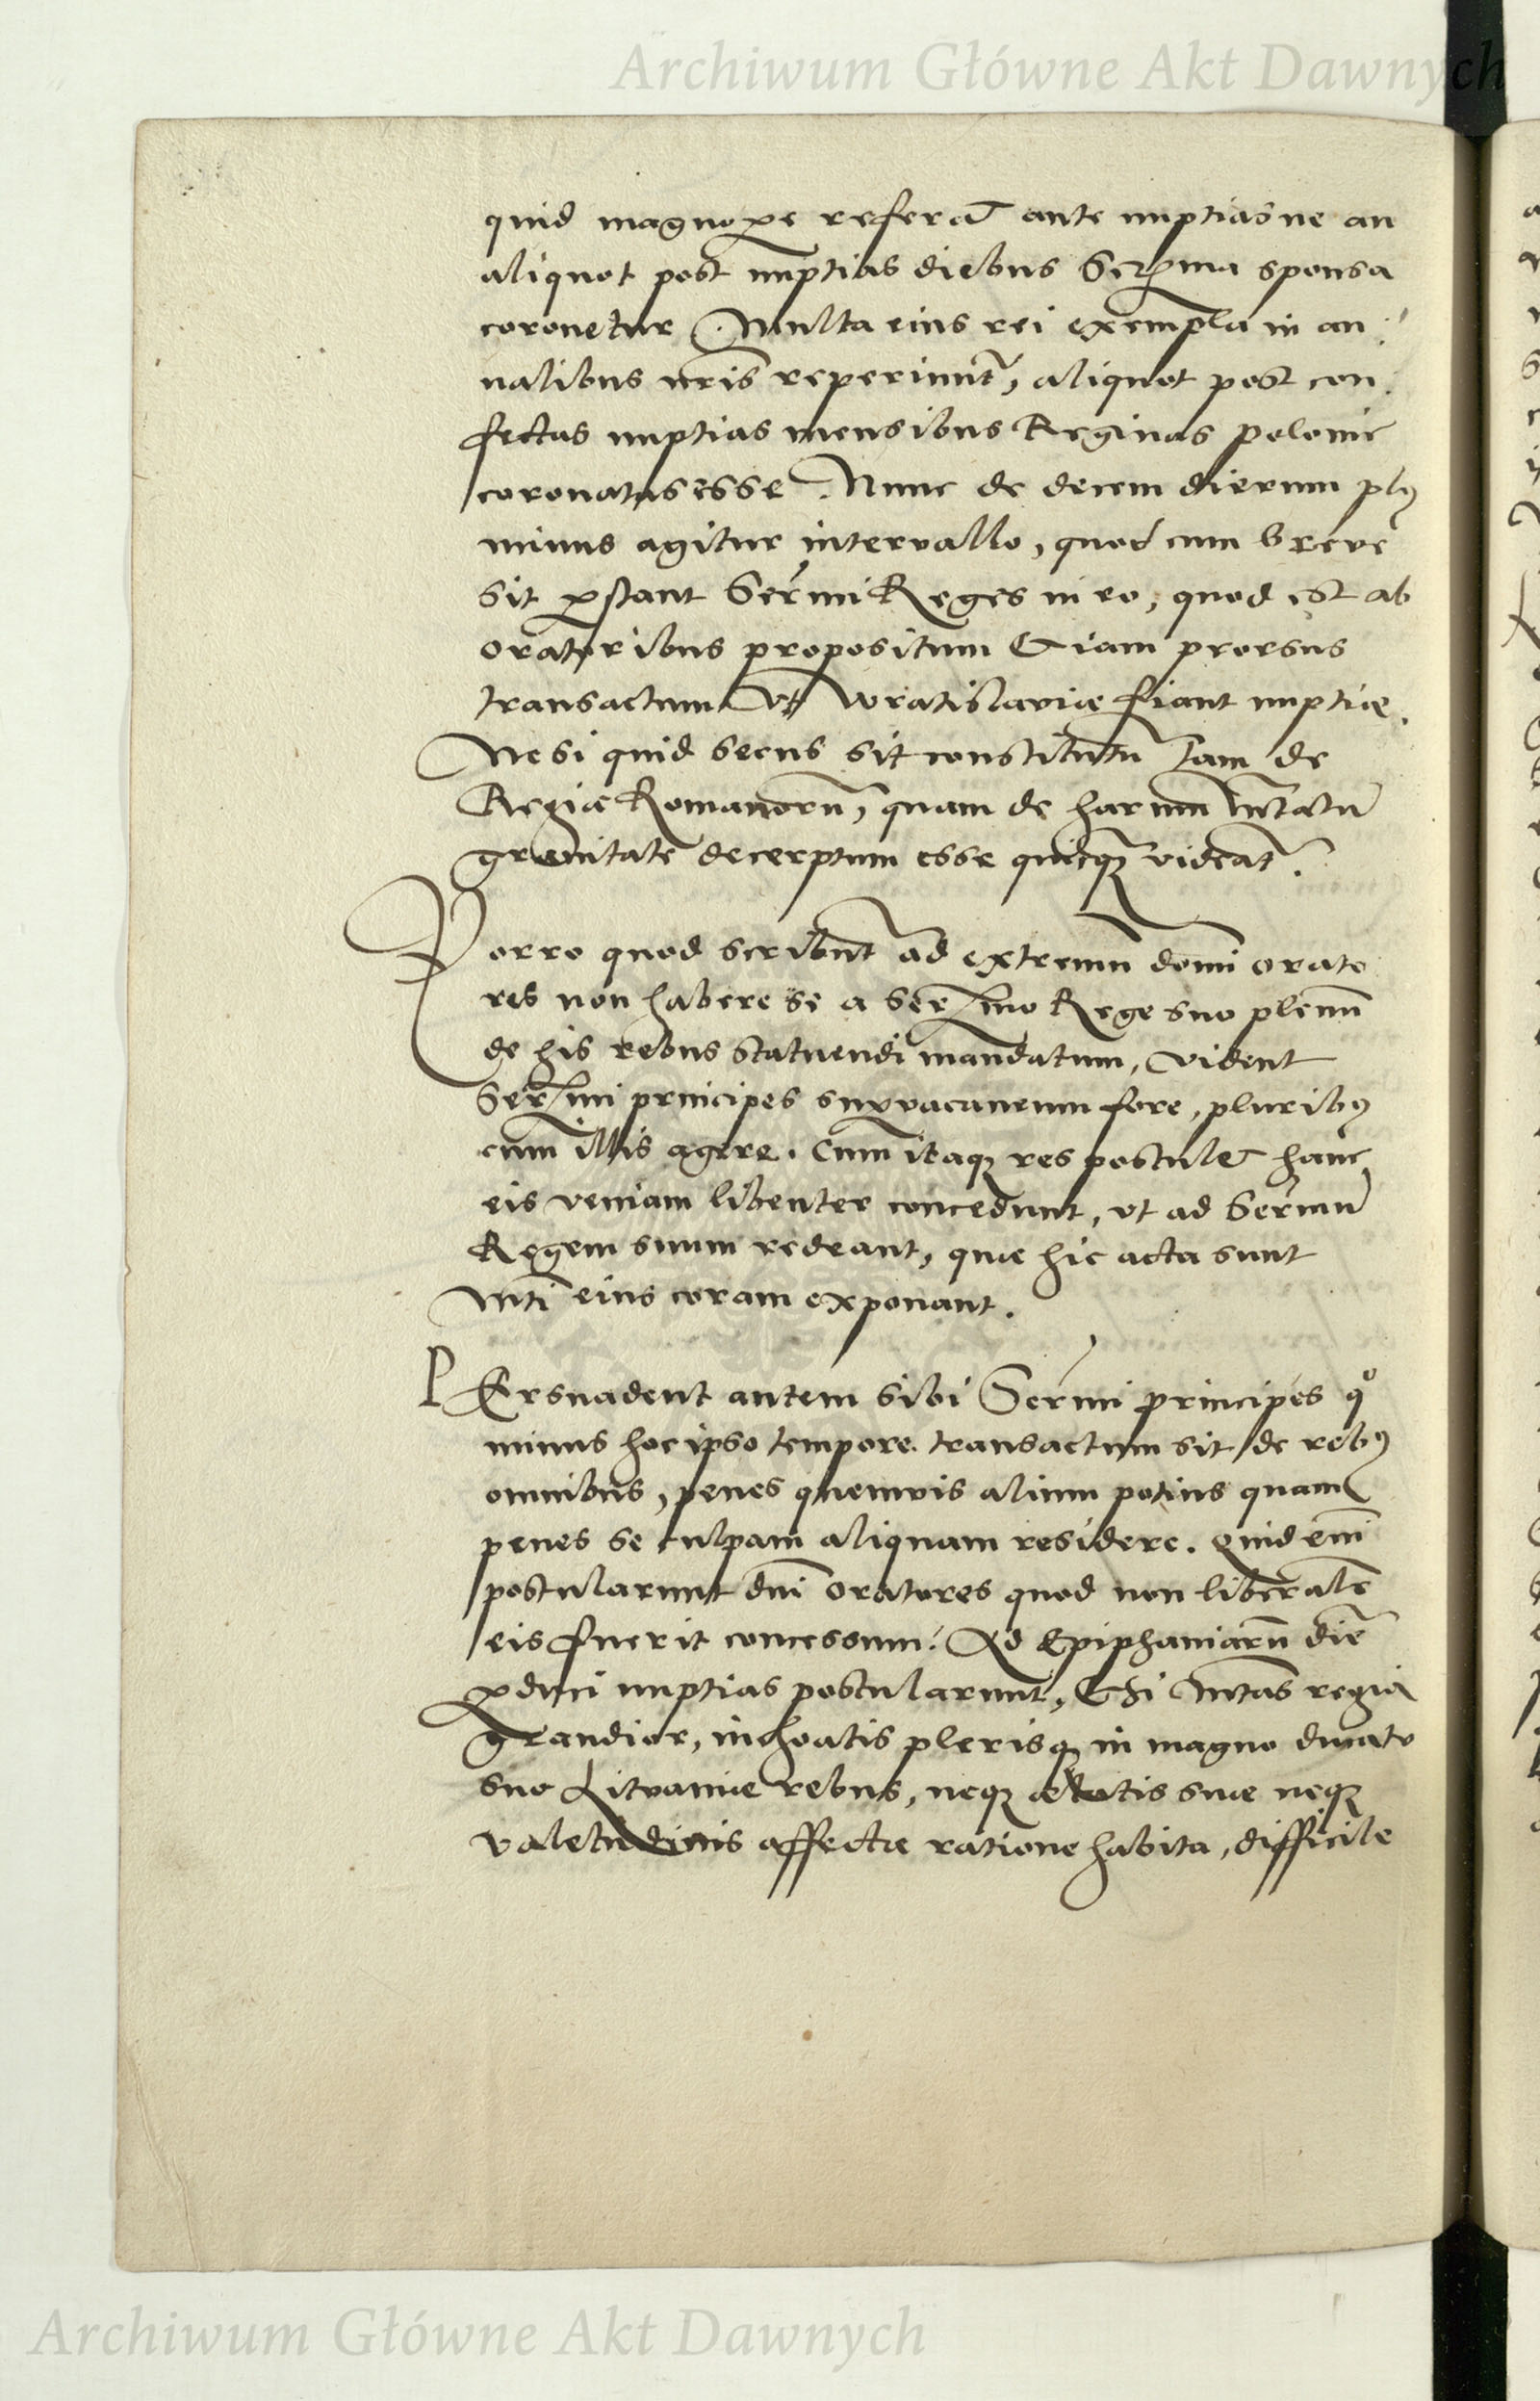 Archiwum Główne Akt Dawnych
quid magnopꝑe referat ante nuptiasne an
aliquot post nuptias diebus Serma sponsa
coronetur. Multa eius rei exempla in an
nalibus nris reperiunt, aliquot post con
fectas nuptias mensibus Reginas polonie
coronatas esse. Nunc de decem dierum plꝰ
minus agitur intervallo, quod cum breve
sit ꝑstant Sermi Reges in eo, quod est ab
oratoribus propositum & iam prorsus
transactum Vt Wratislaviæ fiant nuptiæ.
Ne si quid secus sit constitutū tam de
Regiæ Romanorū, quam de harum Mtatū
gravitate decerptum esse quicqꝫ videat.
Porro quod scribunt ad extremum domi orato
res non habere se a Sermo Rege suo plenū
de his rebus statuendi mandatum, vident
Sermi principes suꝑvacaneum fore, pluribꝰ
cum illis agere. Cum itaqꝫ res postulet hanc
eis veniam libenter concedunt, vt ad Sermū
Regem suum redeant, quæ hic acta sunt
Mti eius coram exponant.
PErsuadent autem sibi Sermi principes qͦ
minus hoc ipso tempore transactum sit de rebꝰ
omnibus, penes quemvis alium potius quam
penes se culpam aliquam residere. Quid em
postularunt dni Oratores quod non liberalr̄
eis fuerit concessum? Ad Epiphaniarū diē
ꝓduci nuptias postularunt, Etsi Mtas regia
grandior, inchoatis plerisqꝫ in magno ducatu
suo Lituaniæ rebus, neqꝫ ætatis suæ neqꝫ
valetudinis affectæ ratione habita, difficile
Archiwum Główne Akt Dawnych